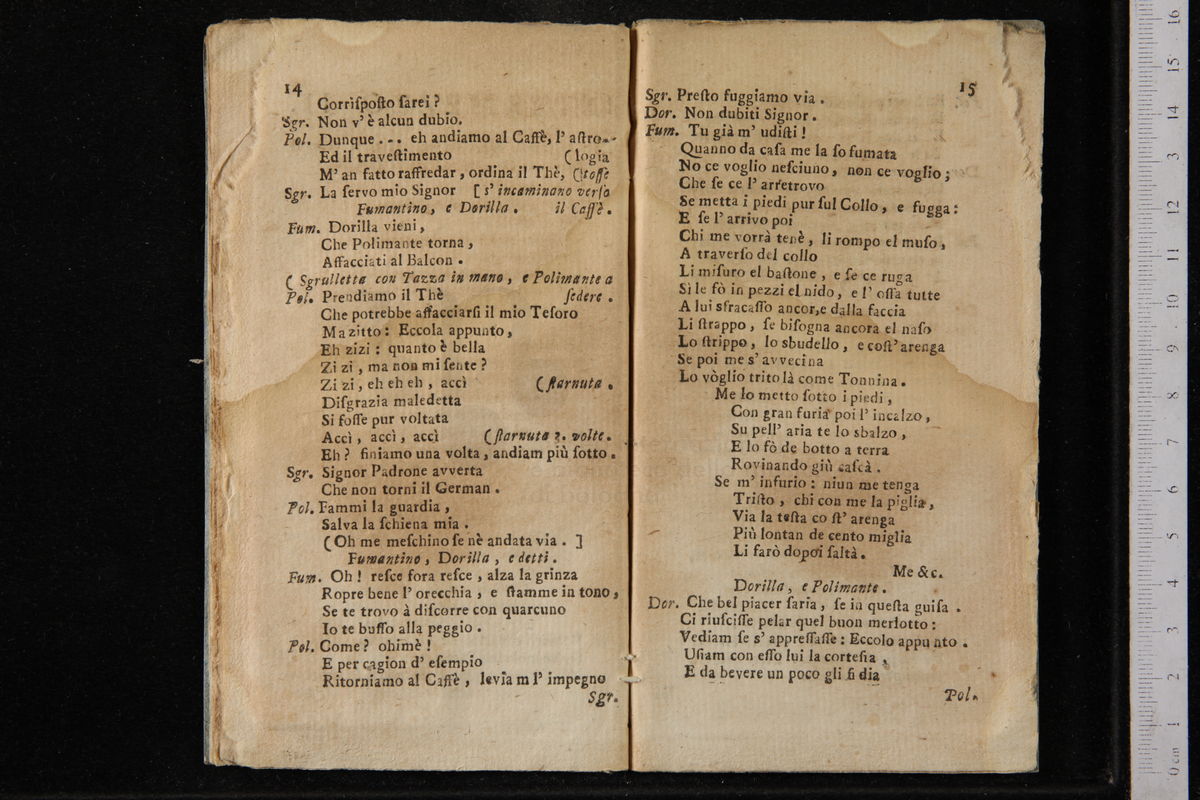 14
Corrìſpoſto ſarei ?
Sgr. Non v' è alcun dubio.
Pol. Dunque . . . eh andiamo al Caffè, l' aſtro-
Ed il traveſtimento ( logia
M' an fatto raffredar , ordina il Thè, ( toſſe
Sgr. La ſervo mio Signor [ s' incaminano verſo
Fumantino, e Dorilla . il Caffè .
Fum. Dorilla vieni ,
Che Polimante torna ,
Affacciati al Balcon .
( Sgrulletta con Tazza in mano , e Polimante a
Pol. Prendiamo il Thè ſedere .
Che potrebbe affacciarſi il mio Teſoro
Ma zitto : Eccola appunto ,
Eh zi zi : quanto è bella
Zi zi , ma non mi ſente ?
Zi zi , eh eh eh , accì ( ſtarnuta .
Diſgrazia maledetta
Si foſſe pur voltata
Accì , accì , accì ( ſtarnuta 3. volte .
Eh ? finiamo una volta , andiam più ſotto .
Sgr. Signor Padrone avverta
Che non torni il German .
Pol. Fammi la guardia ,
Salva la ſchiena mia .
( Oh me meſchino ſe nè andata via . ]
Fumantino , Dorilla , e detti .
Fum. Oh ! reſce fora reſce , alza la grinza
Ropre bene l' orecchia , e ſtamme in tono ,
Se te trovo à diſcorre con quarcuno
Io te buffo alla peggio .
Pol. Come ? ohimè !
E per cagion d' eſempio
Ritorniamo al Caffè , leviam l' impegno
Sgr.
15
Sgr. Preſto fuggiamo via .
Dor. Non dubiti Signor .
Fum. Tu già m' udiſti !
Quanno da caſa me la ſo fumata
No ce voglio neſciuno , non ce voglio ;
Che ſe ce l' arretrovo
Se metta i piedi pur ſul Collo , e fugga :
E ſe l' arrivo poi
Chi me vorrà tenè , li rompo el muſo ,
A traverſo del collo
Li miſuro el baſtone , e ſe ce ruga
Sì le fò in pezzi el nido , e l' oſſa tutte
A lui sfracaſſo ancor,e dalla faccia
Li ſtrappo , ſe biſogna ancora el naſo
Lo ſtrippo , lo sbudello , e coſt' arenga
Se poi me s' avvecina
Lo vòglio trito là come Tonnina .
Me lo metto ſotto i piedi ,
Con gran furia poi l' incalzo ,
Su pell' aria te lo sbalzo ,
E lo fò de botto a terra
Rovinando giù caſcà .
Se m' infurio : niun me tenga
Triſto , chi con me la piglia ,
Via la teſta co ſt' arenga
Più lontan de cento miglia
Li farò dopoi ſaltà .
Me &c.
Dorilla , e Polimante .
Dor. Che bel piacer ſaria , ſe in queſta guiſa .
Ci riuſciſſe pelar quel buon merlotto :
Vediam ſe s' appreſſaſſe : Eccolo appunto .
Uſiam con eſſo lui la corteſia ,
E da bevere un poco gli ſi dia
Pol.